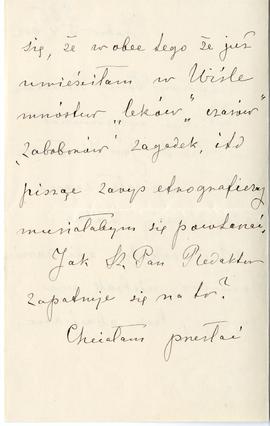 się, że wobec tego że już
umieściłam w Wiśle
mnóstwo „leków" „czarów"
„zabobonów" zagadek, itd
pisząc zarys etnograficzny
musiałabym się powtarzać.
Jak Sz. Pan Redaktor
zapatruje się na to?
Chciałam przesłać